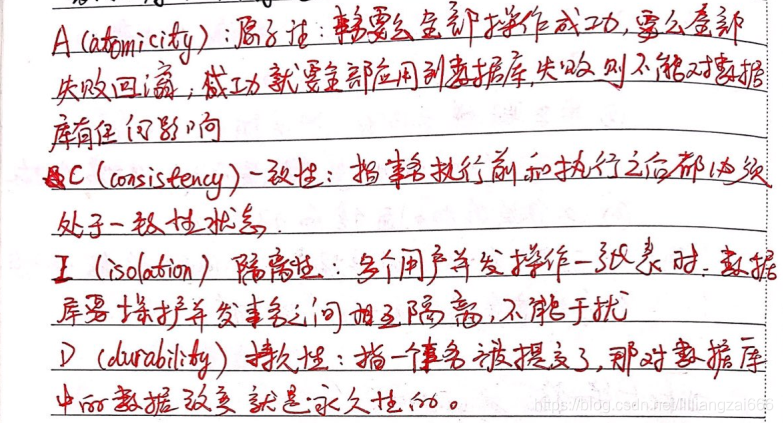 A (atomicity)：原子性：事务要么全部操作成功，要么全部
失败回滚，成功就要全部应用到数据库，失败则不能对数据
库有任何影响
C (consistency) 一致性：指事务执行前和执行之后都必须
处于一致性状态.
I (isolation) 隔离性：多个用户并发操作一张表时. 数据
库要 保护并发事务之间相互隔离，不能干扰
D (durability) 持久性：指一个事务被提交了，那对数据库
中的数据改变就是永久性的。